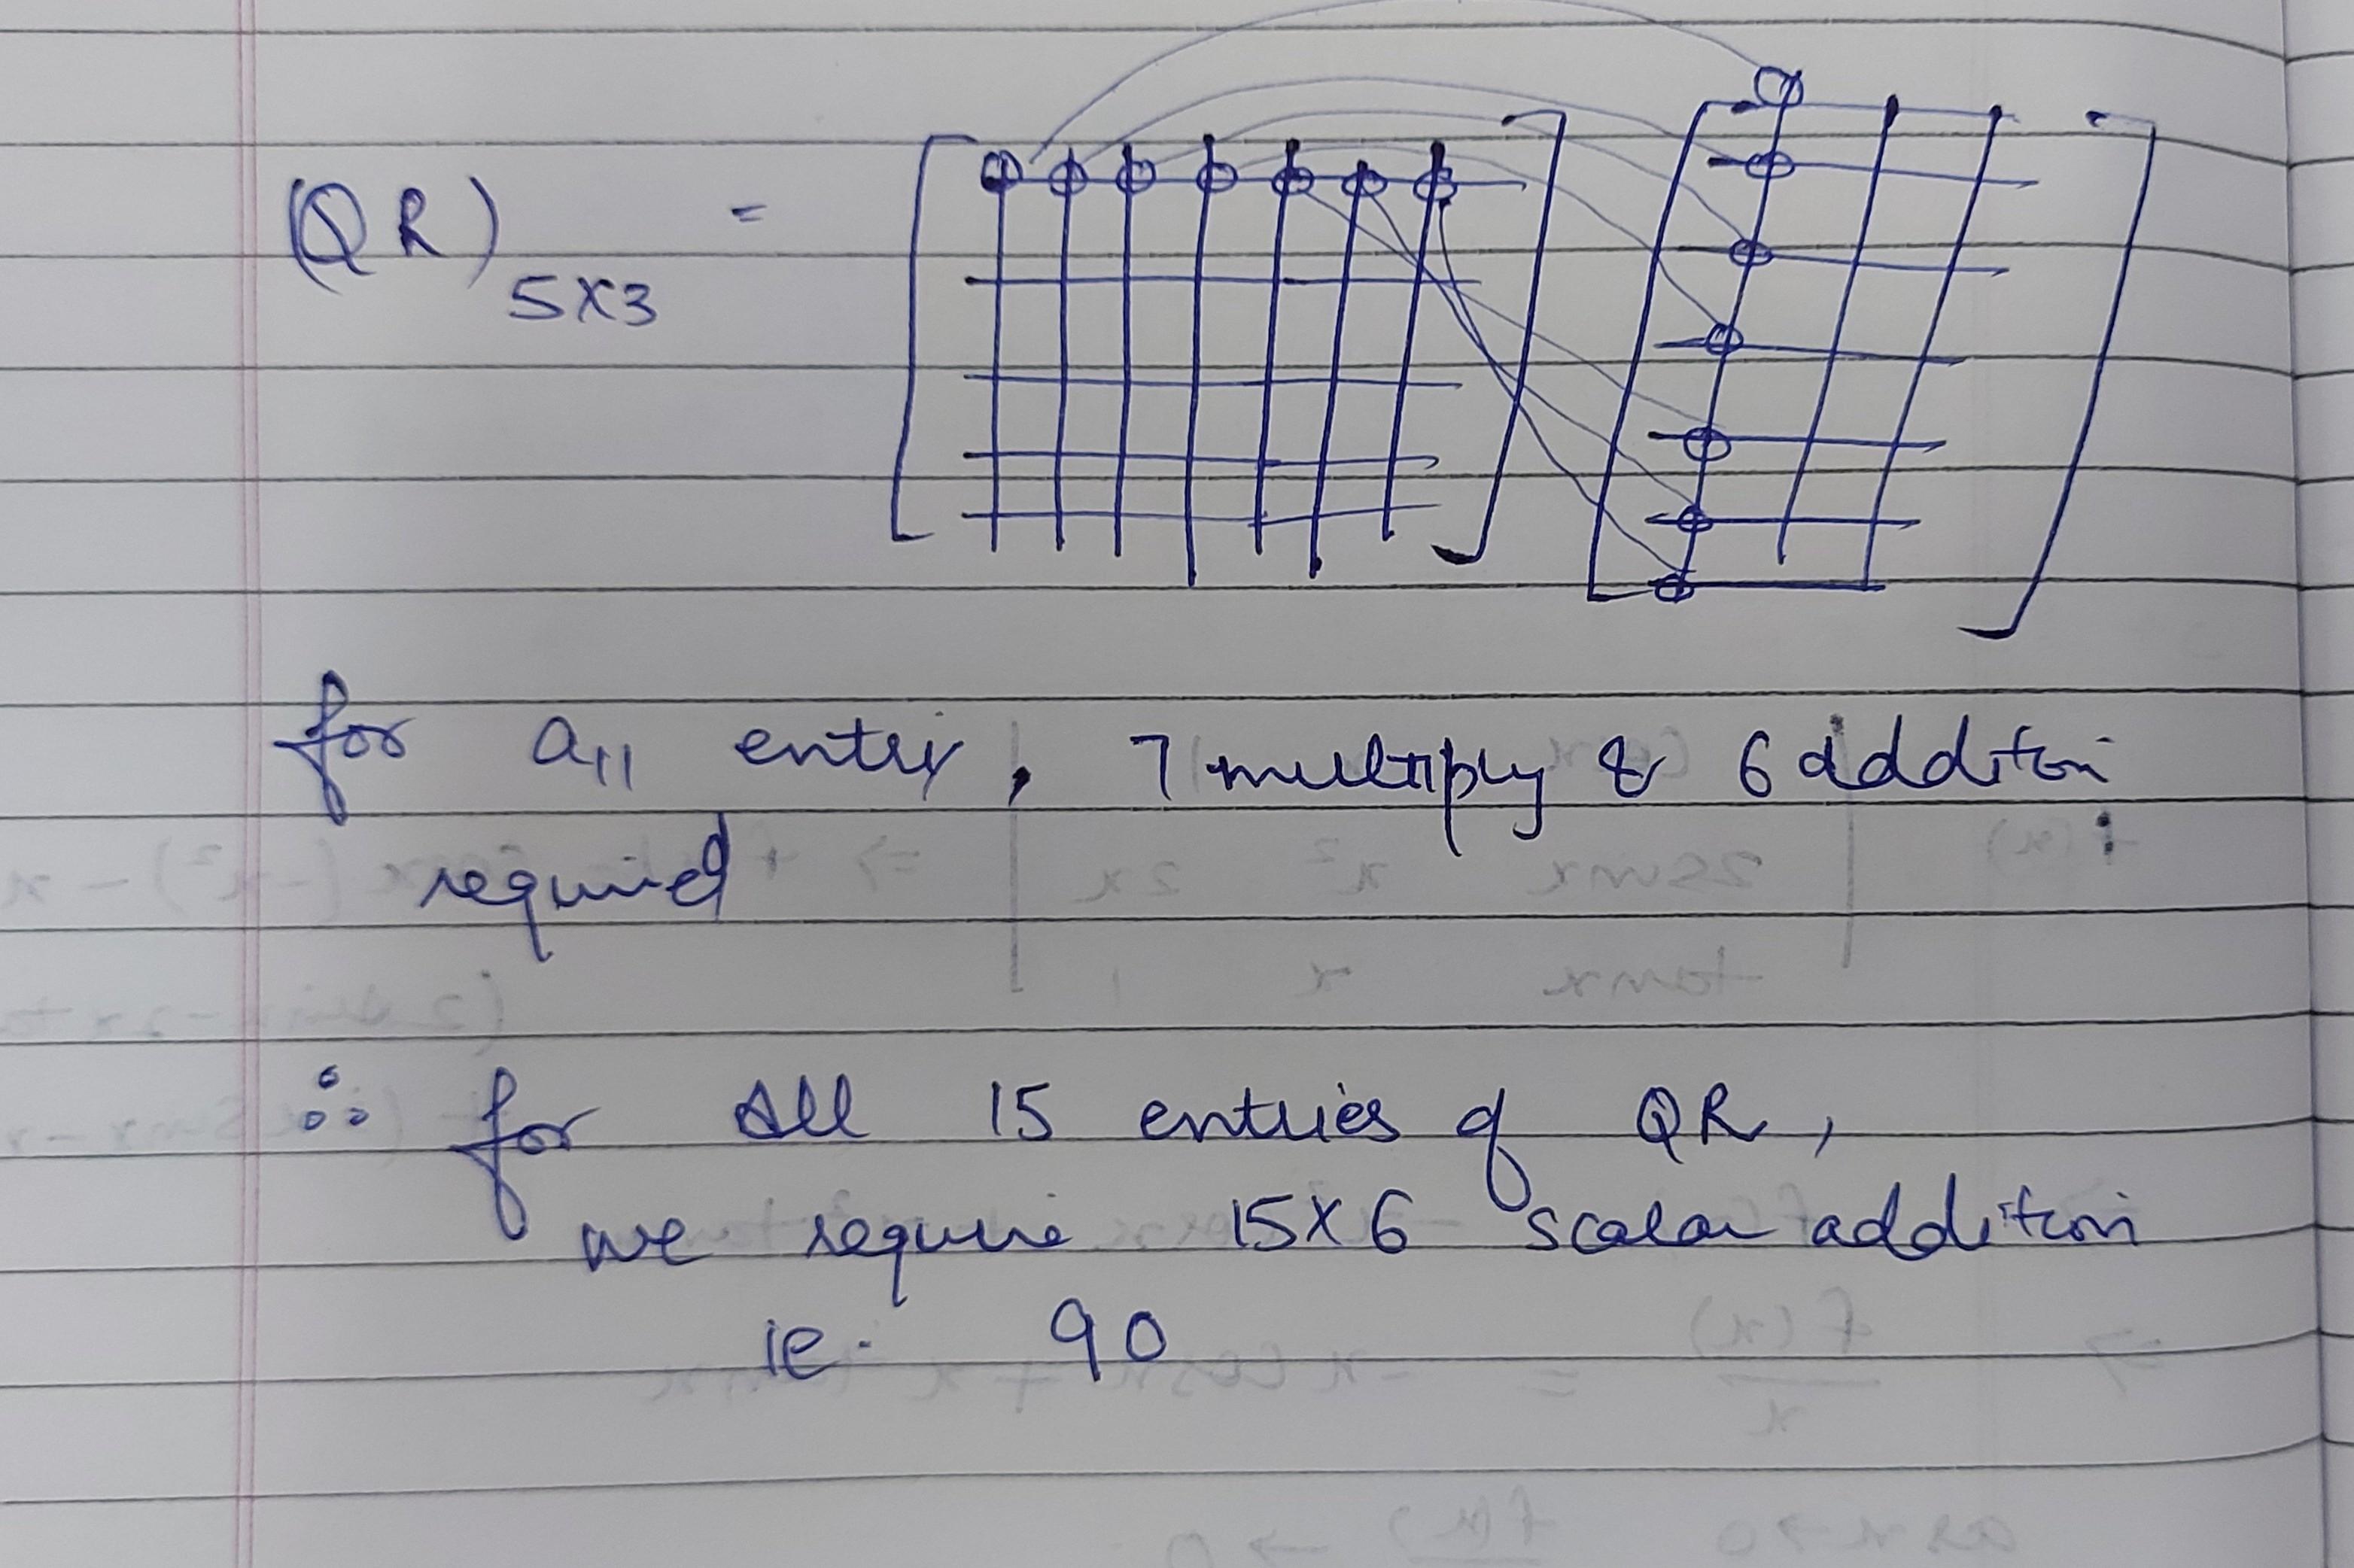 (QR) 5X3 =
for a11 entry, 7 multiply & 6 addition
required
∴ for all 15 entries of QR,
we require 15X6 scalar addition
ie. 90